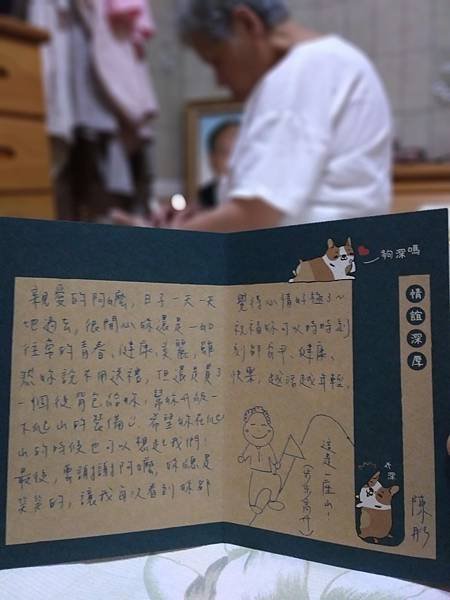 親愛的阿嬤,日子一天一天
地過去,很開心妳還是一如
往常的青春、健康、美麗,雖
然妳說不用送禮,但還是買了
一個後背包給妳,幫妳升級一
下爬山的裝備,希望妳在爬
山的時候也可以想起我們!
最後,要謝謝阿嬤,妳總是
笑笑的,讓我每次看到妳都
覺得心情好極了~
祝福妳可以時時刻
刻都年輕、健康、
快樂,越活越年輕
這是一座山!
(步步高升)
狗深嗎
情誼深厚
夠深
陳彤